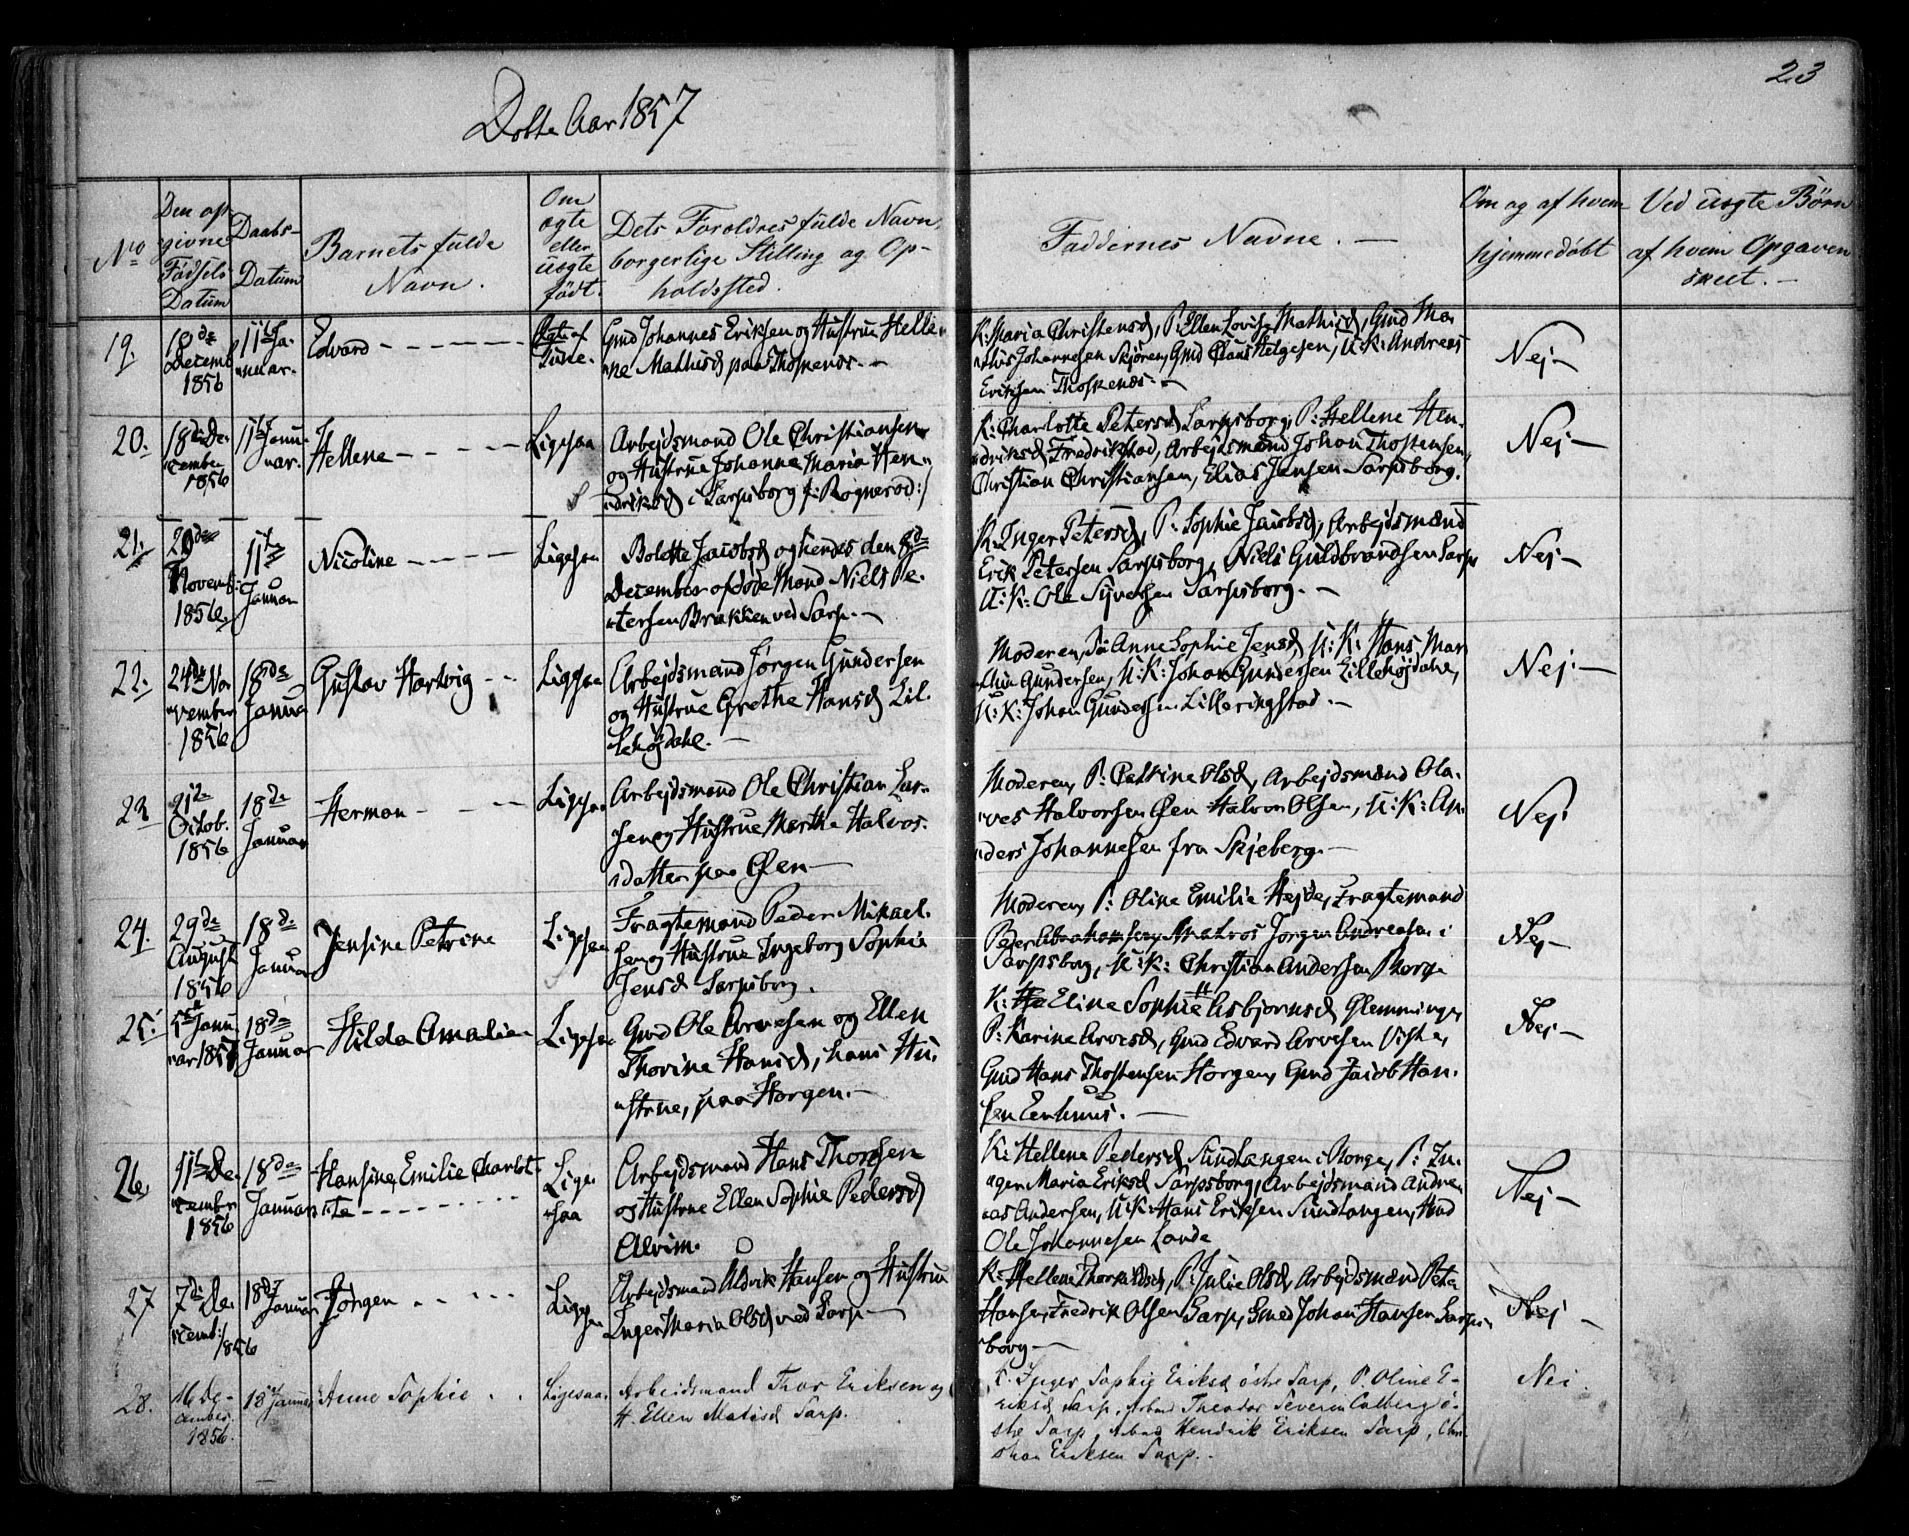 23
Døbte Aar 1857
No
Den op-
givne
Fødsels
Datum
Daabs-
Datum
Barnets fulde
Navn.
Om
ægte
eller
uægte
født.
Dets Forældres fulde Navn,
borgerlige Stilling og Op-
holdssted.
Faddernes Navne. —
Om og af hvem
hjemmedøbt
Ved uægte Børn
af hvem Opgaven
skeet. —
19.
18de
Decemb
1856
11te Ja-
nuar.
Edvard
Gmd Johannes Eriksen og Hustrue Helle-
ne Mathisd paa
K: Maria Christensd, P: Ellen Lovise Mathisd, Gmd Ma-
Johannesen Skjøren, Gmd Claus Helgesen, U: K: Andreas
Eriksen
Nej —
20.
18de De-
cember
1856
11te Janu-
ar.
Hellene
Ligesaa
Arbejdsmand Ole Christiansen
og Hustrue Johanne Maria Hen-
driksd i Sarpsborg /: Rognerød:/
K: Charlotte Petersd Sarpsborg, P: Hellene Hen-
driksd Fredrikstad, Arbejdsmænd Johan Thostensen,
Christian Christiansen, Elias Jensen Sarpsborg.
Nej —
21.
29de
Novemb:
1856.
11te
Januar
Nicoline
Ligesaa
Bolette Jacobsd og hendes den 8de
December afdøde Mand Niels Pe-
tersen Brakken ved Sarp. —
K: Inger Petersd, P: Sophie Jacobsd, Arbejdsmænd
Erik Petersen Sarpsborg, Niels Guldbrandsen Sarp
U: K: Ole Syversen Sarpsborg. —
Nej —
22.
24de No-
vember
1856
18de
Januar
Gustav Hartvig
Ligesaa
Arbejdsmand Jørgen Gundersen
og Hustrue Grethe Hansd Lil-
lehøjdahl. —
Moderen, P: Anne Sophie Jensd, U: K: Hans Mar-
thin Gundersen, U: K: Johan Gundersen Lillehøjdahl,
U: K: Johan Gundersen Lilleringstad. —
Nej: —
23
21de
Octob.
1856
18de
Januar
Herman
Ligesaa
Arbejdsmand Ole Christian Lar-
sen og Hustrue Marthe Halvors-
datter paa Øen —
Moderen, P: Petrine Olsd, Arbejdsmænd Ola-
ves Halvorsen Øen Halvor Olsen, U: K: An-
ders Johannesen fra Skjeberg. —
Nej
24.
29de
August
1856
18de
Januar
Jensine Petrine
Ligesaa
Fragtemand Peder Mikael-
sen og Hustrue Ingeborg Sophie
Jensd Sarpsborg.
Moderen, P: Oline Emilie Hejde, Fragtemand
Peder Abrahamsen, Matros Jørgen Andreasen i
Sarpsborg, U: K: Christian Andersen Borge
Nej —
25.
5te Janu-
ar 1857
18de
Januar
Hilda Amalie
Ligesaa
Gmd Ole Arvesen og Ellen
Thovine Hansd, hans Hu-
strue, paa Horgen. —
K: Eline Sophie Asbjørnsd Glemminge,
P: Karine Arvesd, Gmd Edvard Arvesen Viste,
Gmd Hans Thostensen Horgen, Gmd Jacob Han-
sen Eenhuus. —
Nej —
26.
11te De-
cember
1856
18de
Januar
Hansine Emilie Charlot-
te
Lige-
saa
Arbejdsmand Hans Thoresen
og Hustrue Ellen Sophie Pedersd
Alvim.
K: Hellene Pedersd Sundlangen i Borge, P: In-
ger Maria Eriksd Sarpsborg, Arbejdsmænd Andre-
as Andersen, U: K: Hans Eriksen Sundlangen, Hmd
Ole Johannesen Lande
Nej —
27
7de De-
cemb:
1856
18de Januar
Jørgen
Ligesaa
Arbejdsmand Hansen og Hustrue
Inger Maria Olsd ved Sarp —
K: Hellene Thorkildsd, P: Julie Olsd, Arbejdsmænd Peter
Hansen, Fredrik Olsen Sarp, Smed Johan Hansen Sarps-
borg —
Nej —
28.
16 De-
cember.
1856.
18 Januar
Anne Sophie
Ligesaa
Arbeidsmand Thor Eriksen og
H. Ellen Matisd Sarp.
K. Inger Sophie Eriksd østre Sarp, P. Oline E-
riksd Sarp, Arbmd Theodor Severin Calberg ø-
stre Sarp, Arbmd Hendrik Eriksen Sarp,
Eriksen Sarp. -
Nei.